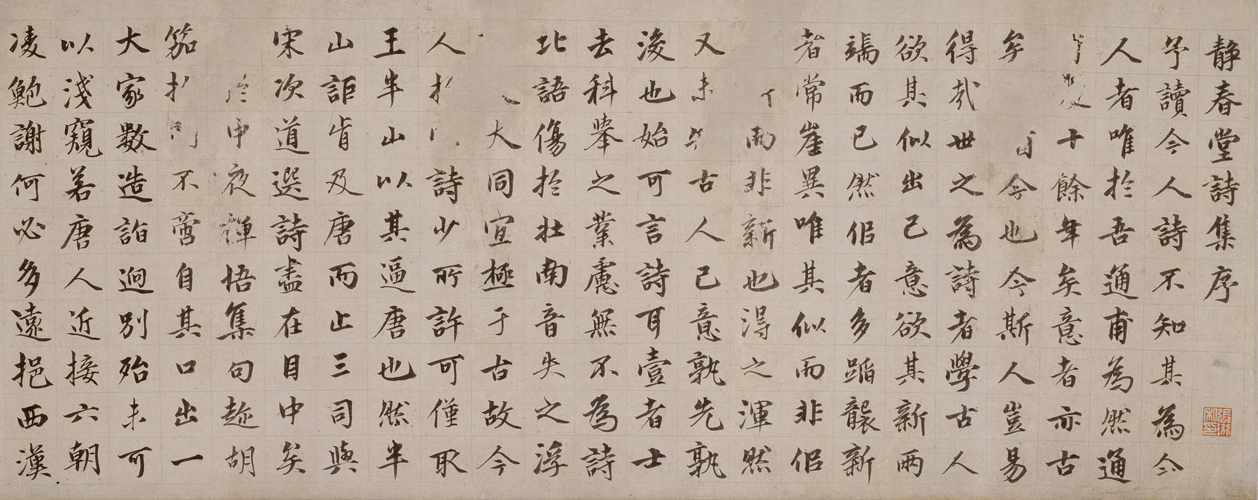 静春堂詩集序
予讀今人詩不知其為今
人者唯於吾通甫為然通
十餘年矣意者亦古
矣今也今斯人豈易
得哉世之為詩者學古人
欲其似出己意欲其新兩
端而已然佀者多蹈襲新
者常崖異唯其似而非佀
而非新也得之渾然
又未古人己意孰先孰
後也始可言詩耳壹者士
去科舉之業慮無不為詩
北語傷於壯南音失之浮
大同宜極于古故今
人詩少所許可僅取
王半山以其逼唐也然半
山詎肯及唐而止三司與
宋次道選詩盡在目中矣
中夜禪悟集句趂胡
笳不啻自其口出一
大家數造詣迥別殆未可
以淺窺若唐人近接六朝
凌鮑謝何必多遠挹西漢